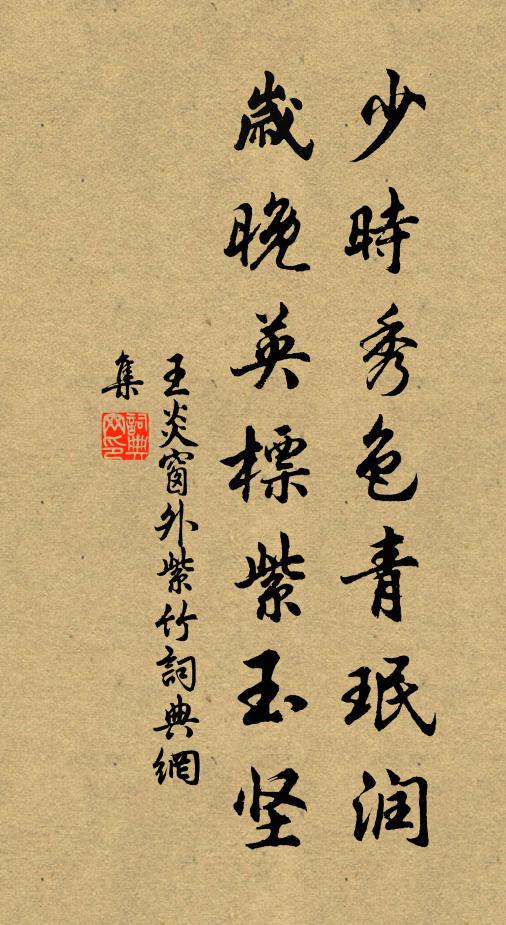 少時秀色青珉润
歲晚英標紫玉坚
王炎窗外紫竹詞典網
集
詞典网印